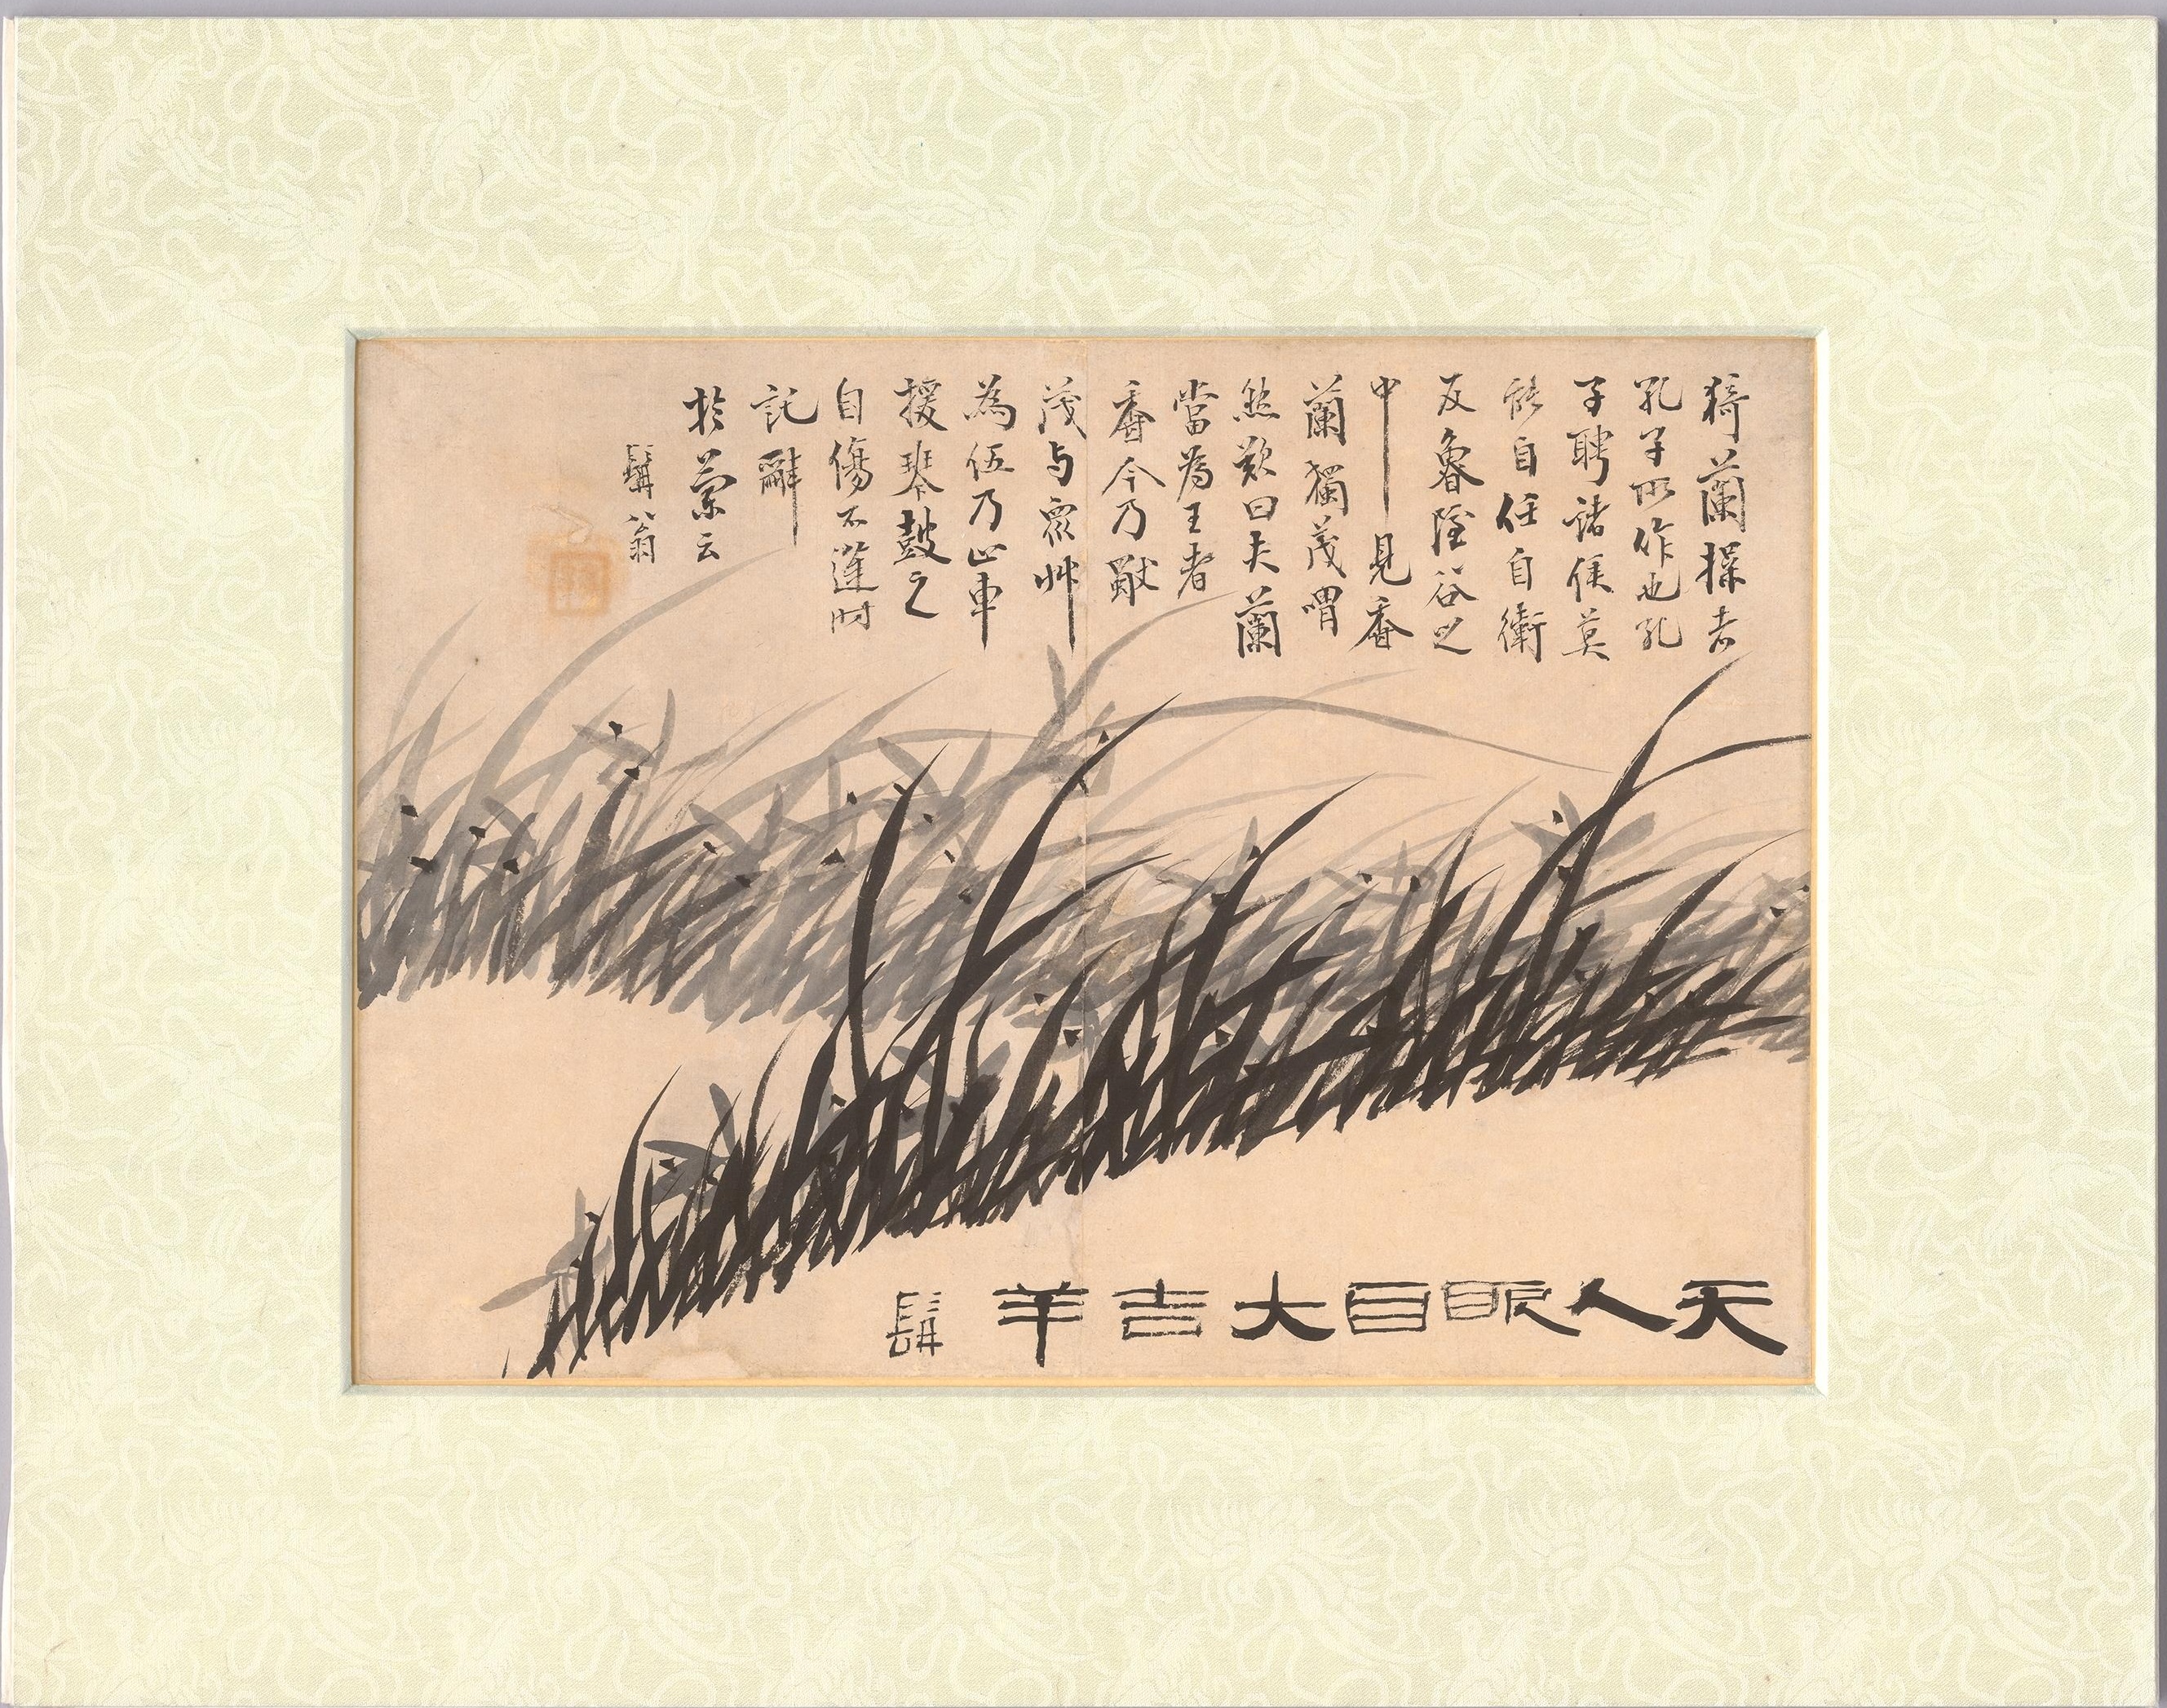 猗蘭操者
孔子所作也孔
子聘諸侯莫
能自任自衛
反魯隱谷之
中見香
蘭獨茂喟
然歎曰夫蘭
當為王者
香今乃獻
茂与眾艸
為伍乃止車
援琴鼓之
自傷不逢时
託辭
於蘭云
髯翁
天人眼目大吉羊
髯